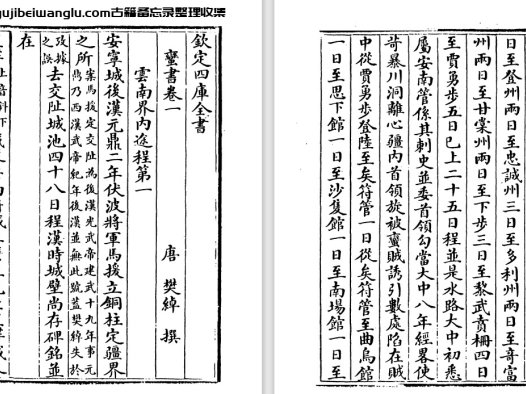 ujibeiwanglu.com古籍备忘录整理收集
欽定四庫全書
蠻書卷一
唐 樊綽 撰
雲南界内途程第一
安寧城後漢元鼎二年伏波將軍馬援立銅柱定疆界
之所
案馬援定交趾為後漢光武帝建武十九年事元
鼎乃西漢武帝紀年後漢並無此號蓋樊綽失於
攷據
之誤
去交趾城池四十八日程漢時城壁尚存碑銘並
在
日至登州兩日至忠誠州三日至多利州兩日至奇富
州兩日至甘棠州兩日至下步三日至黎武賁柵四日
至賈勇步五日已上二十五日程並是水路大中初悉
屬安南管係其刺史並委首領勾當大中八年經略使
苛暴川洞離心疆内首領旋被蠻賊誘引數處陷在賊
中從賈勇步登陸至矣符管一日從矣符管至曲烏館
一日至思下館一日至沙隻館一日至南場館一日至